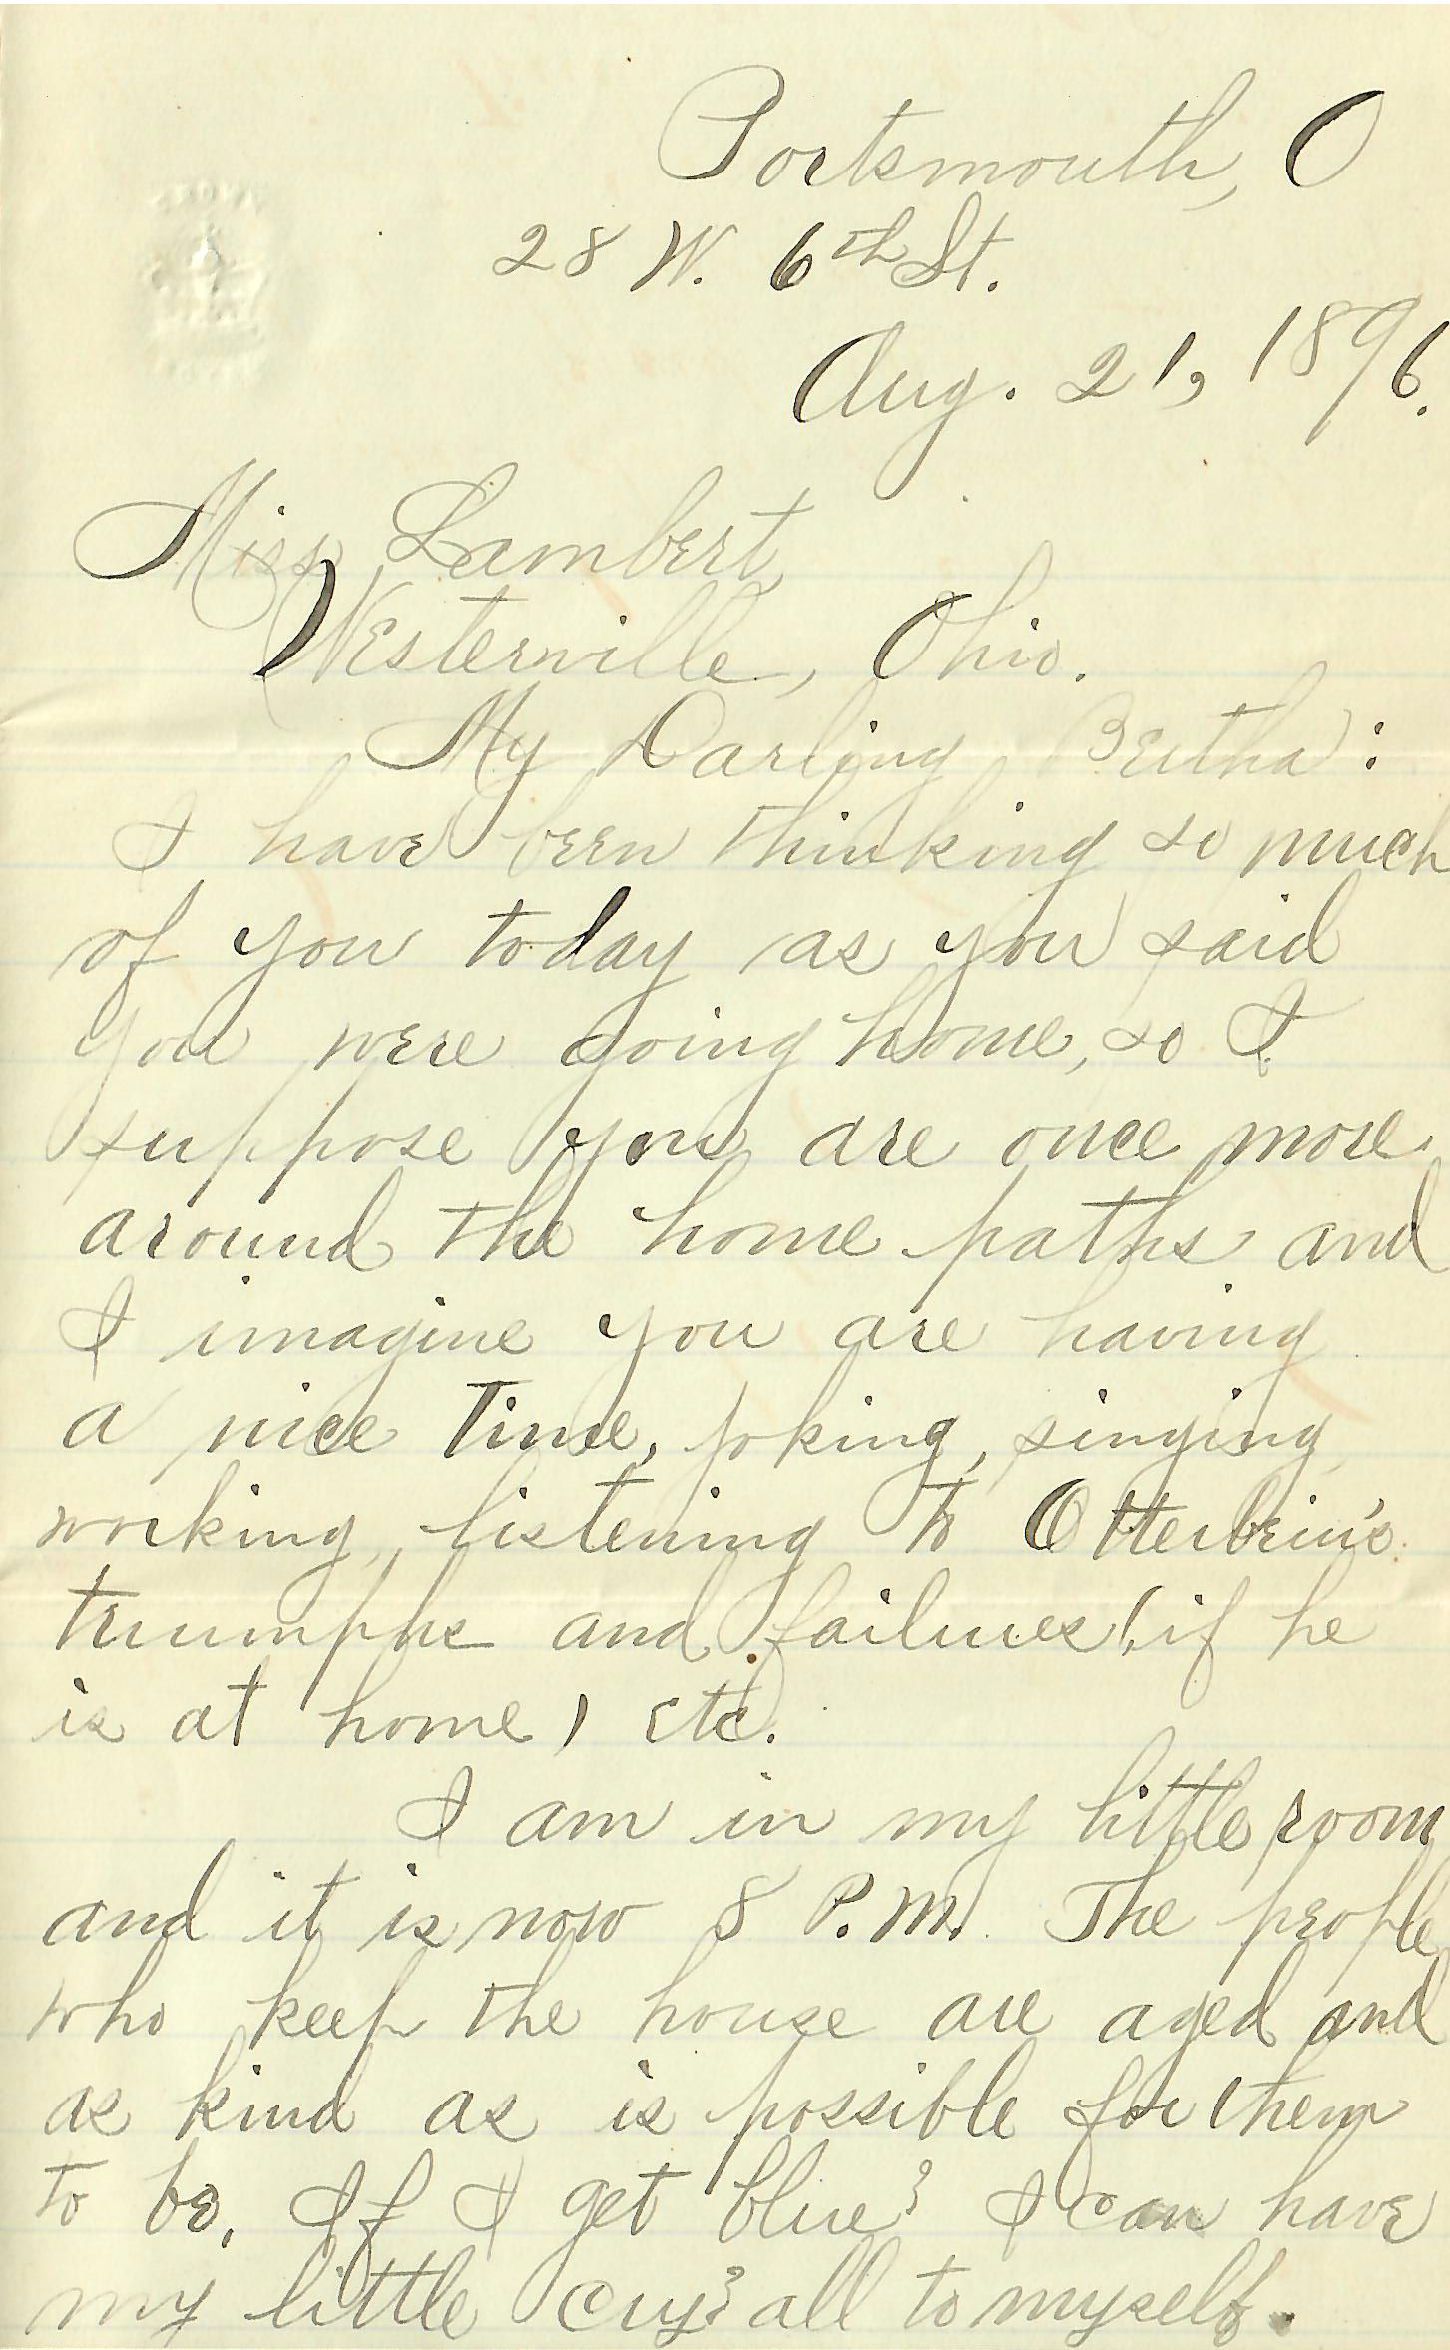 Portsmouth, O
28 W. 6th St.
Aug. 21, 1896.
Miss Lambert,
Westerville, Ohio.
My Darling Bertha:
I have been thinking so much
of you today as you said
you were going home, so I
suppose you are once more
around the home paths and
I imagine you are having
a nice time, joking, singing,
working, listening to Otterbein's
triumphs and failures (if he
is at home) etc.
I am in my little room
and it is now 8 P.M. The people
who keep the house are aged and
as kind as is possible for them
to be. If I get "blue" I can have
my little "cry" all to myself.